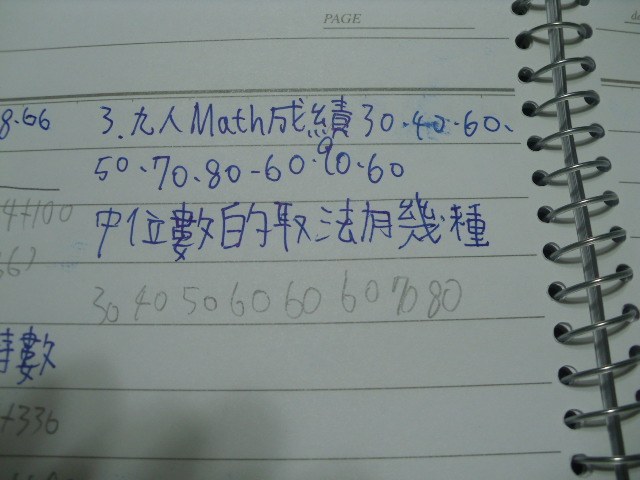 PAGE
8.66
3.九人Math成績30、40、60、
50、70、80、60、90、60
4+100
中位數的取法有幾種
30 40 50 60 60 60 70 80
數
+336